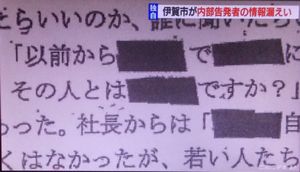 独自
伊賀市が内部告発者の情報漏えい
たらいいのか、誰に聞いたら
「以前から で に
その人とは ですか?」
った。社長からは「 自
くはなかったが、若い人たち